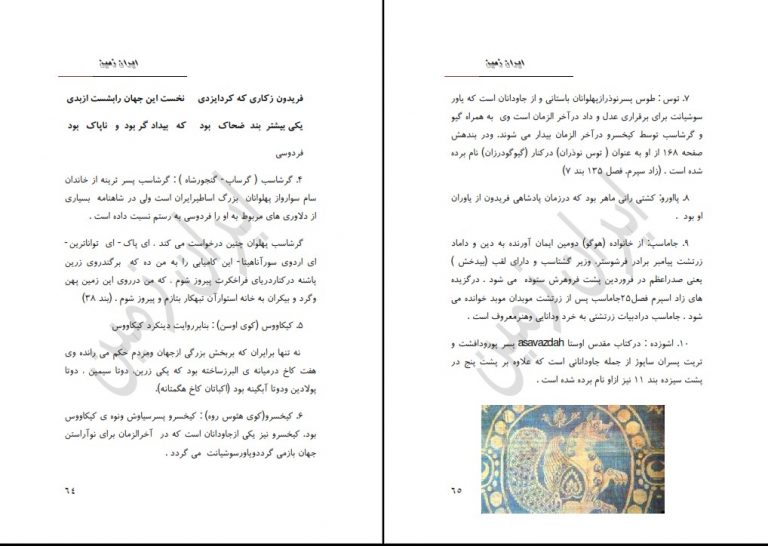 ایران زمین
فریدون زکاری که کردایزدی نخست این جهان رابشست ازبدی
یکی بیشتر بند ضحاک بود که بیداد گر بود و ناپاک بود
فردوسی
۴. گرشاسب ( گرساب - گنجورشاه ) : گرشاسب پسر ترینه از خاندان
سام سوارواز پهلوانان بزرگ اساطیرایران است ولی در شاهنامه بسیاری
از دلاوری های مربوط به او را فردوسی به رستم نسبت داده است .
گرشاسب پهلوان چنین درخواست می کند . ای پاک - ای تواناترین -
ای اردوی سورآناهیتا - این کامیابی را به من ده که برگندروی زرین
پاشنه درکناردریای فراخکرت پیروز شوم . که من درروی این زمین پهن
وگرد و بیکران به خانه استوارآن تبهکار بتازم و پیروز شوم . (بند ۳۸)
۵. کیکاووس (کوی اوسن) : بنابرروایت دینکرد کیکاووس
نه تنها برایران که بربخش بزرگی ازجهان ومردم حکم می رانده وی
هفت کاخ درمیانه ی البرزساخته بود که یکی زرین، دوتا سیمین . دوتا
پولادین ودوتا آبگینه بود (اکباتان کاخ هگمتانه).
۶. کیخسرو(کوی هئوس روه) : کیخسرو پسرسیاوش ونوه ی کیکاووس
بود. کیخسرو نیز یکی ازجاودانان است که در آخرالزمان برای نوآراستن
جهان بازمی گرددویاورسوشیانت می گردد .
۶۴
ایران زمین
ایران زمین
۷. توس : طوس پسرنوذرازپهلوانان باستانی و از جاودانان است که یاور
سوشیانت برای برقراری عدل و داد درآخر الزمان است وی به همراه گیو
و گرشاسب توسط کیخسرو درآخر الزمان بیدار می شوند. ودر بندهش
صفحه ۱۶۸ از او به عنوان ( توس نوذران) درکنار (گیوگودرزان) نام برده
شده است . (زاد سپرم. فصل ۱۳۵ بند ۷)
۸. پااورو: کشتی رانی ماهر بود که درزمان پادشاهی فریدون از یاوران
او بود .
۹. جاماسب: از خانواده (هوگو) دومین ایمان آورنده به دین و داماد
زرتشت پیامبر برادر فرشوستر. وزیر گشتاسب و دارای لقب (بیدخش )
یعنی صدراعظم در فروردین پشت فروهرش ستوده می شود . درگزیده
های زاد اسپرم فصل۲۵جاماسب پس از زرتشت موبدان موبد خوانده می
شود . جاماسب درادبیات زرتشتی به خرد ودانایی وهنرمعروف است .
۱۰. اشوزده : درکتاب مقدس اوستا asavazdah پسر پورودافشت و
تریت پسران سایوژ از جمله جاودانانی است که علاوه بر پشت پنج در
پشت سیزده بند ۱۱ نیز ازاو نام برده شده است .
۶۵
ایران زمین